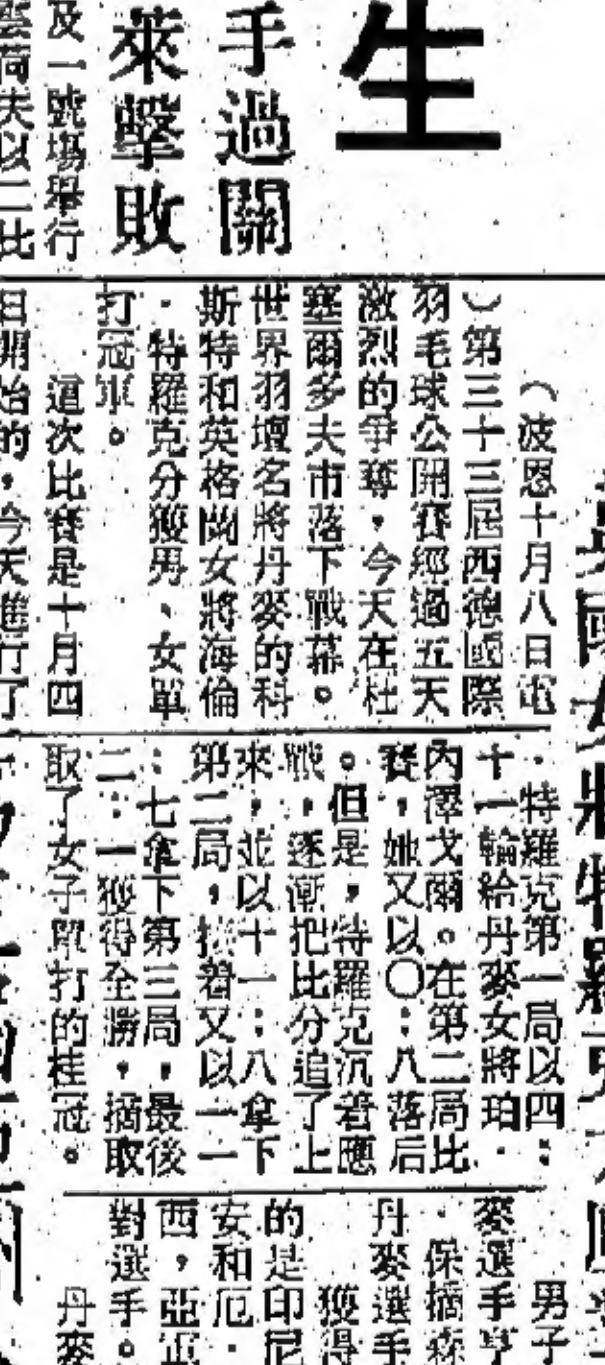 生
手過關
萊擊敗
及一號場舉行
雲荷夫以二比
（波恩十月八日電
）第三十三屆西德國際
羽毛球公開賽經過五天
激烈的爭奪，今天在杜
塞爾多夫市落下戰幕。
世界羽壇名將丹麥的科
斯特和英格蘭女將海倫
・特羅克分獲男、女單
打冠軍。
這次比賽是十月四
日開始的，今天進行了
國女將特羅克
・特羅克第一局以四：
十一輸給丹麥女將珀・
內澤戈爾。在第二局比
賽，她又以〇：八落后
。但是，特羅克沉着應
戰，逐漸把比分追了上
來，並以十一：八拿下
第二局，接着又以一一
：七拿下第三局，最後
二：一獲得全勝，摘取
取了女子單打的桂冠。
男子
麥選手亨
・保摘森
丹麥選手
獲得
的是印尼
安和厄・
西，亞軍
對選手。
丹麥